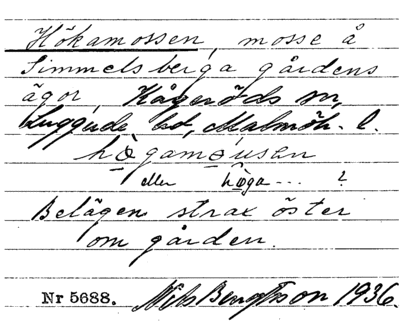 Hökamossen, mosse å
Simmelsberga gårdens
ägor, Kågeröds sn,
Luggude hd, Malmöh. l.
hògamǫusan
eller hǫ̀ga... ?
Belägen strax öster
om gården.
Nr 5688. Nils Bengtsson 1936.